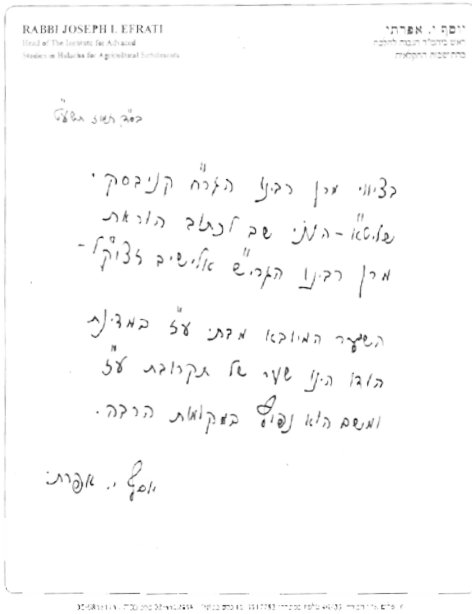 RABBI JOSEPH I. EFRATI
Head of The Institute for Advanced
Studies in Halacha for Agricultural Settlements
יוסף י. אפרתי
ראש בית המדרש הגבוה להלכה
בהתישבות החקלאית
בס"ד, תמוז תשע"ט
בציווי מרן רבינו הגר"ח קניבסקי
שליט"א - הנני שב לכתוב הוראת
מרן רבינו הגרי"ש אלישיב זצוק"ל -
השער המיובא מבתי ע"ז במדינת
הודו הינו שער של תקרובת ע"ז
ומשם הוא נפוץ במקומות הרבה.
יוסף י. אפרתי